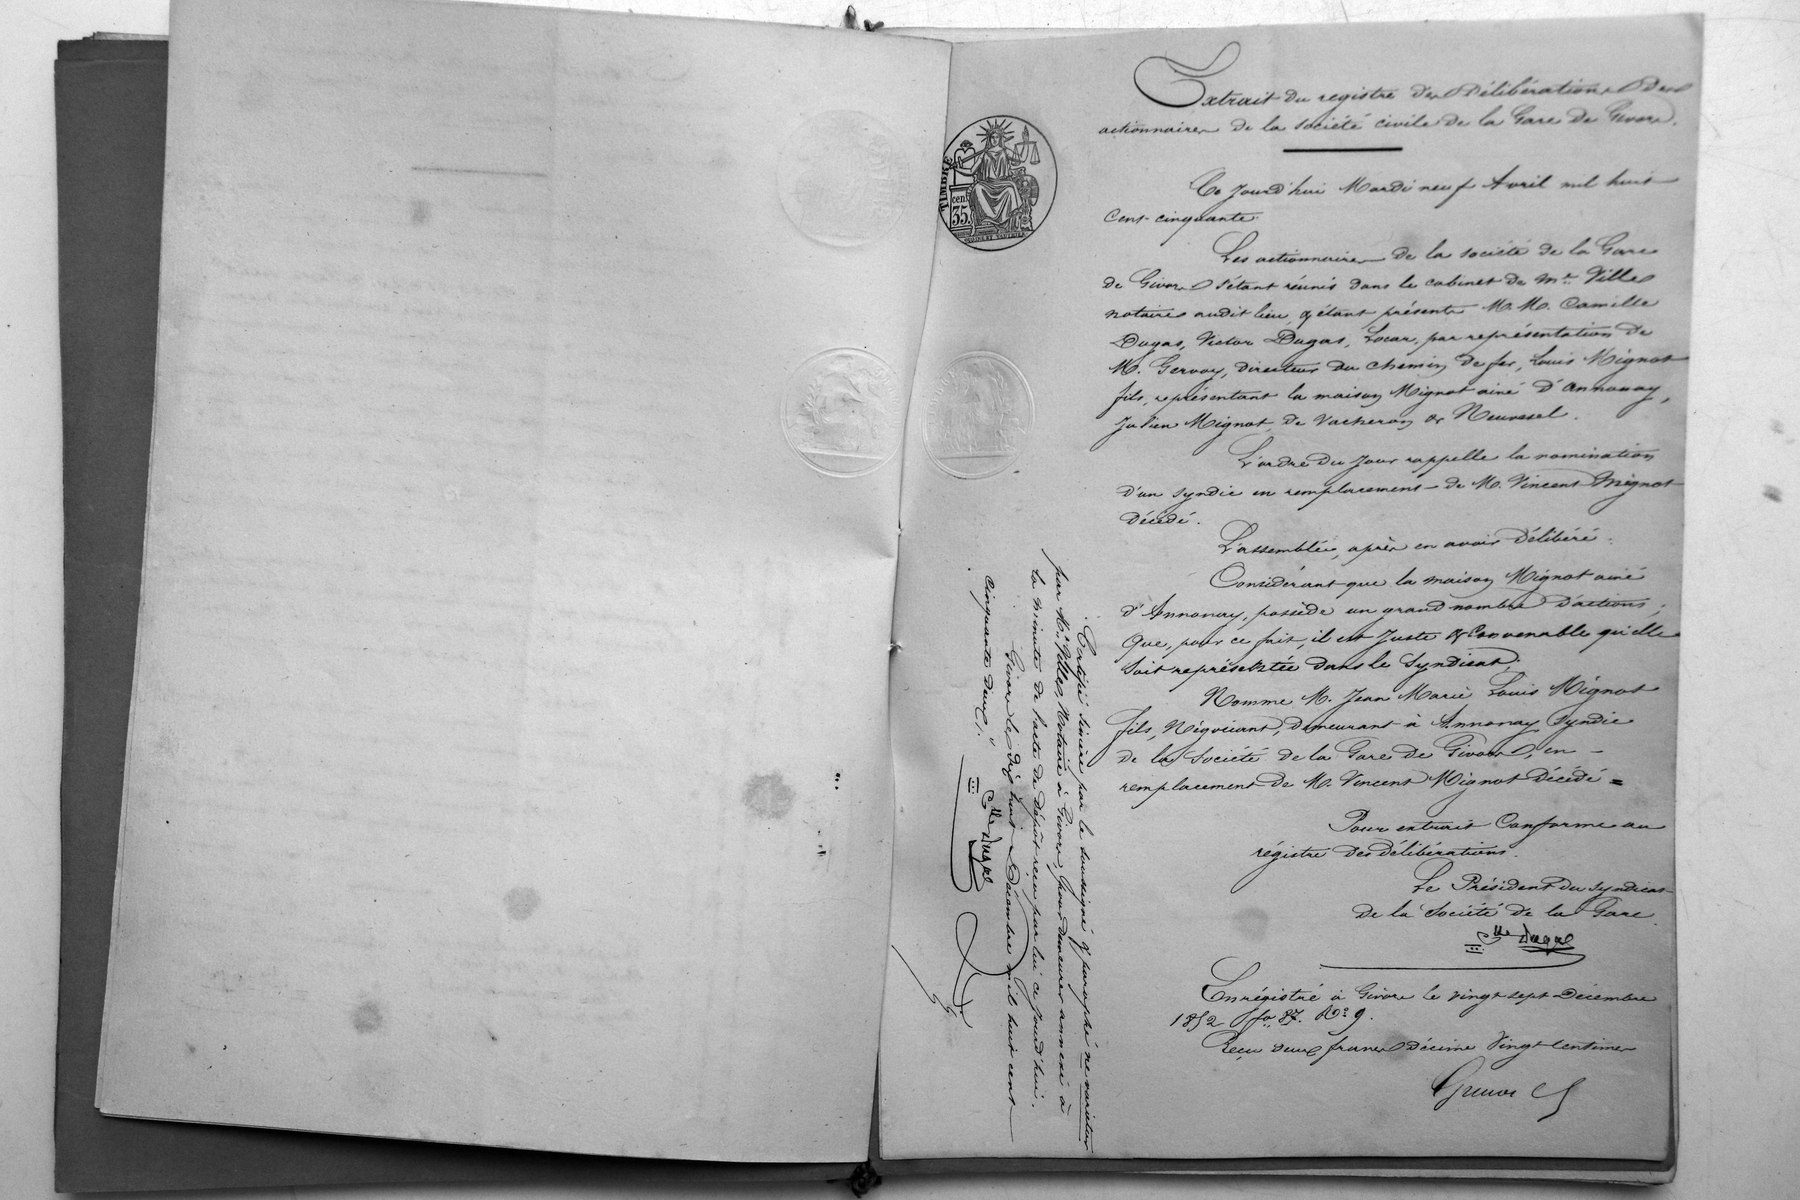 Extrait du registre des Délibérations Des
actionnaires de la société civile de la Gare de Givors.
Ce jourd'hui Mardi neuf Avril mil huit
cent cinquante
Les actionnaires de la société de la Gare
de Givors s'étant réunis dans le cabinet de Me Ville
notaire audit lieu, y étant présents M. M. Camille
Dugas, Victor Dugas, Locar, par représentation de
M. Gervoy, directeur du chemin de fer, Louis Mignot
fils, représentant la maison Mignot ainé d'annonay,
Julien Mignot, de Vacheron & Neuvesel.
L'ordre du jour rappelle la nomination
d'un syndic en remplacement de M. Vincent Mignot
décédé.
L'assemblée, après en avoir délibéré.
Considérant que la maison Mignot ainé
d'Annonay, possède un grand nombre d'actions;
Que, pour ce fait, il est juste & convenable qu'elle
soit représentée dans le Syndicat;
Nomme M. Jean Marie Louis Mignot
fils, Négociant, demeurant à Annonay Syndic
de la Société de la Gare de Givors, en
remplacement de M. Vincent Mignot décédé =
Pour extrait Conforme au
régistre des délibérations.
Le Président du Syndicat
de la Société de la Gare
Clle Dugas
Enrégistré à Givors le vingt sept Décembre
1852 fo 87. No 9.
Reçu deux francs décime vingt centimes
Certifié sincère par le soussigné & paraphé ne varietur
par Me Ville Notaire à Givors, pour demeurer annexé à
la minute de l'acte de dépôt reçu par lui ce jourd'hui.
Givors le dix huit Décembre mil huit cent
cinquante deux.
Clle Dugas
TIMBRE
cent
35.